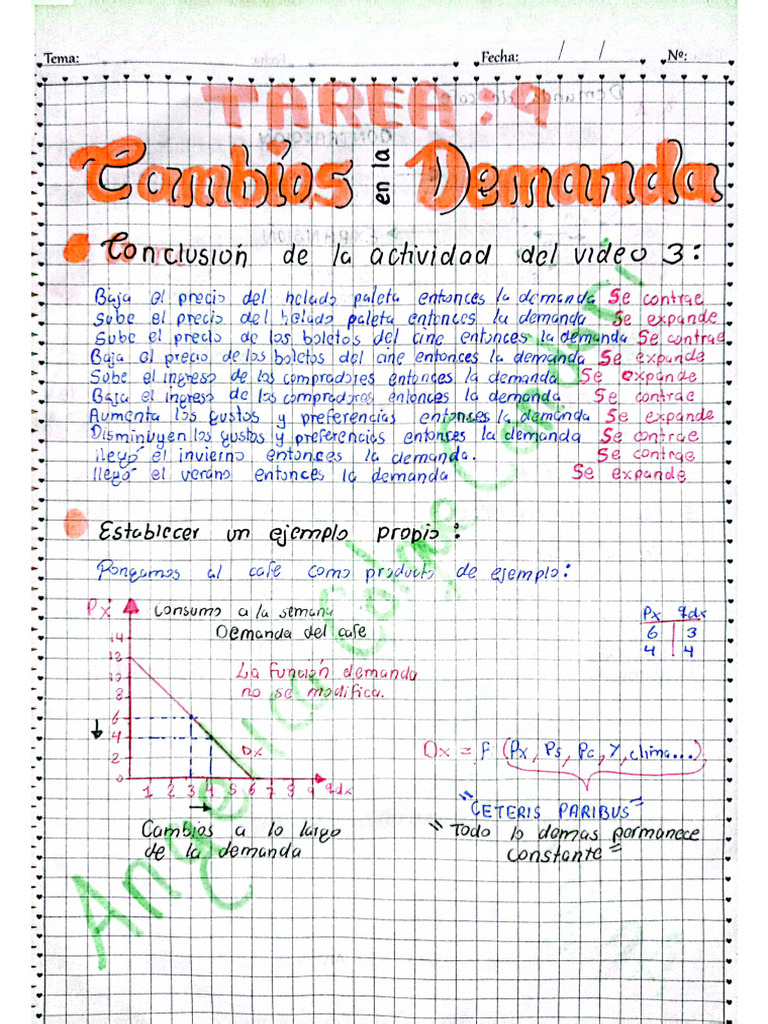 Tema: Fecha: / / Nº:
TAREA: 9
Cambios en la Demanda
Conclusión de la actividad del video 3:
Baja el precio del helado paleta entonces la demanda Se contrae
Sube el precio del helado paleta entonces la demanda Se expande
Sube el precio de los boletos del cine entonces la demanda Se contrae
Baja el precio de los boletos del cine entonces la demanda Se expande
Sube el ingreso de los compradores entonces la demanda Se expande
Baja el ingreso de los compradores entonces la demanda Se contrae
Aumenta los gustos y preferencias entonces la demanda Se expande
Disminuyen los gustos y preferencias entonces la demanda Se contrae
llegó el invierno entonces la demanda. Se contrae
llegó el verano entonces la demanda Se expande
Establecer un ejemplo propio:
Pongamos al cafe como producto de ejemplo:
Px Consumo a la semana
Demanda del cafe
La función demanda
no se modifica.
14
12
10
8
6
4
2
0
Dx
1 2 3 4 5 6 7 8 9 qdx
Cambios a lo largo
de la demanda
Px qdx
6 3
4 4
Dx = F (Px, Ps, Pc, Y, clima...)
"CETERIS PARIBUS"
"Todo lo demas permanece
constante"
Angelica Colque Condori